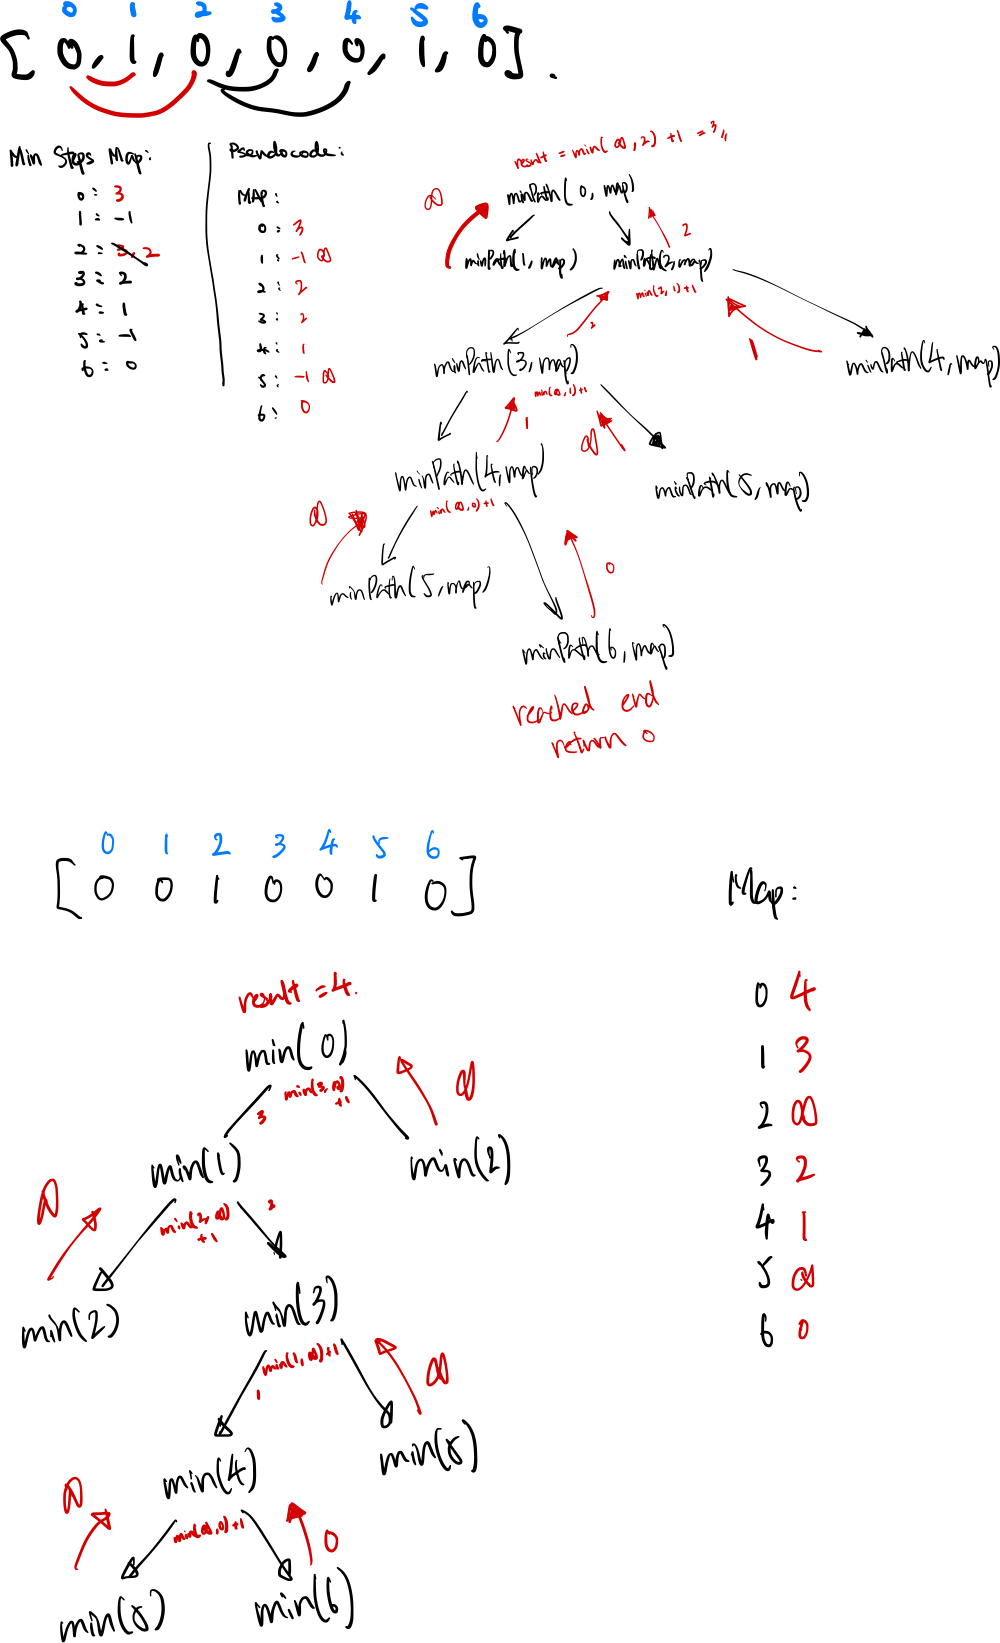 0 1 2 3 4 5 6
[ 0, 1, 0, 0, 0, 1, 0 ].
Min Steps Map:
0: 3
1: -1
2: 3, 2
3: 2
4: 1
5: -1
6: 0
Pseudocode:
MAP:
0: 3
1: -1 ∞
2: 2
3: 2
4: 1
5: -1 ∞
6: 0
result = min( ∞, 2) + 1 = 3
minPath( 0, map)
∞
2
minPath(1, map)
minPath(2, map)
min(2, 1)+1
2
1
minPath(3, map)
minPath(4, map)
min(∞, 1)+1
1
∞
minPath(4, map)
minPath(5, map)
min(∞, 0)+1
∞
0
minPath(5, map)
minPath(6, map)
reached end
return 0
0 1 2 3 4 5 6
[ 0 0 1 0 0 1 0 ]
Map:
0 4
1 3
2 ∞
3 2
4 1
5 ∞
6 0
result = 4.
min( 0)
min(3, ∞)
+1
3
∞
min(1)
min(2)
∞
min(2, ∞)
+1
2
min(2)
min(3)
min(1, ∞)+1
1
∞
min(4)
min(5)
∞
min(∞, 0)+1
0
min(5)
min(6)